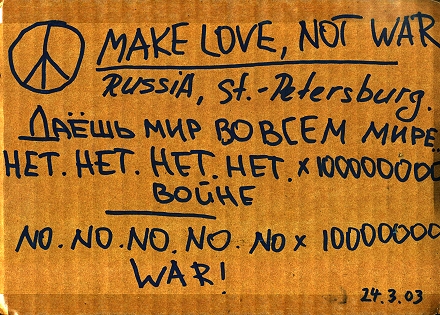 MAKE LOVE, NOT WAR
RussiA, St.-Petersburg.
ДАЁШЬ МИР ВО ВСЕМ МИРЕ
НЕТ. НЕТ. НЕТ. НЕТ. x 100000000
ВОЙНЕ
NO. NO. NO. NO. NO x 10000000
WAR!
24.3.03